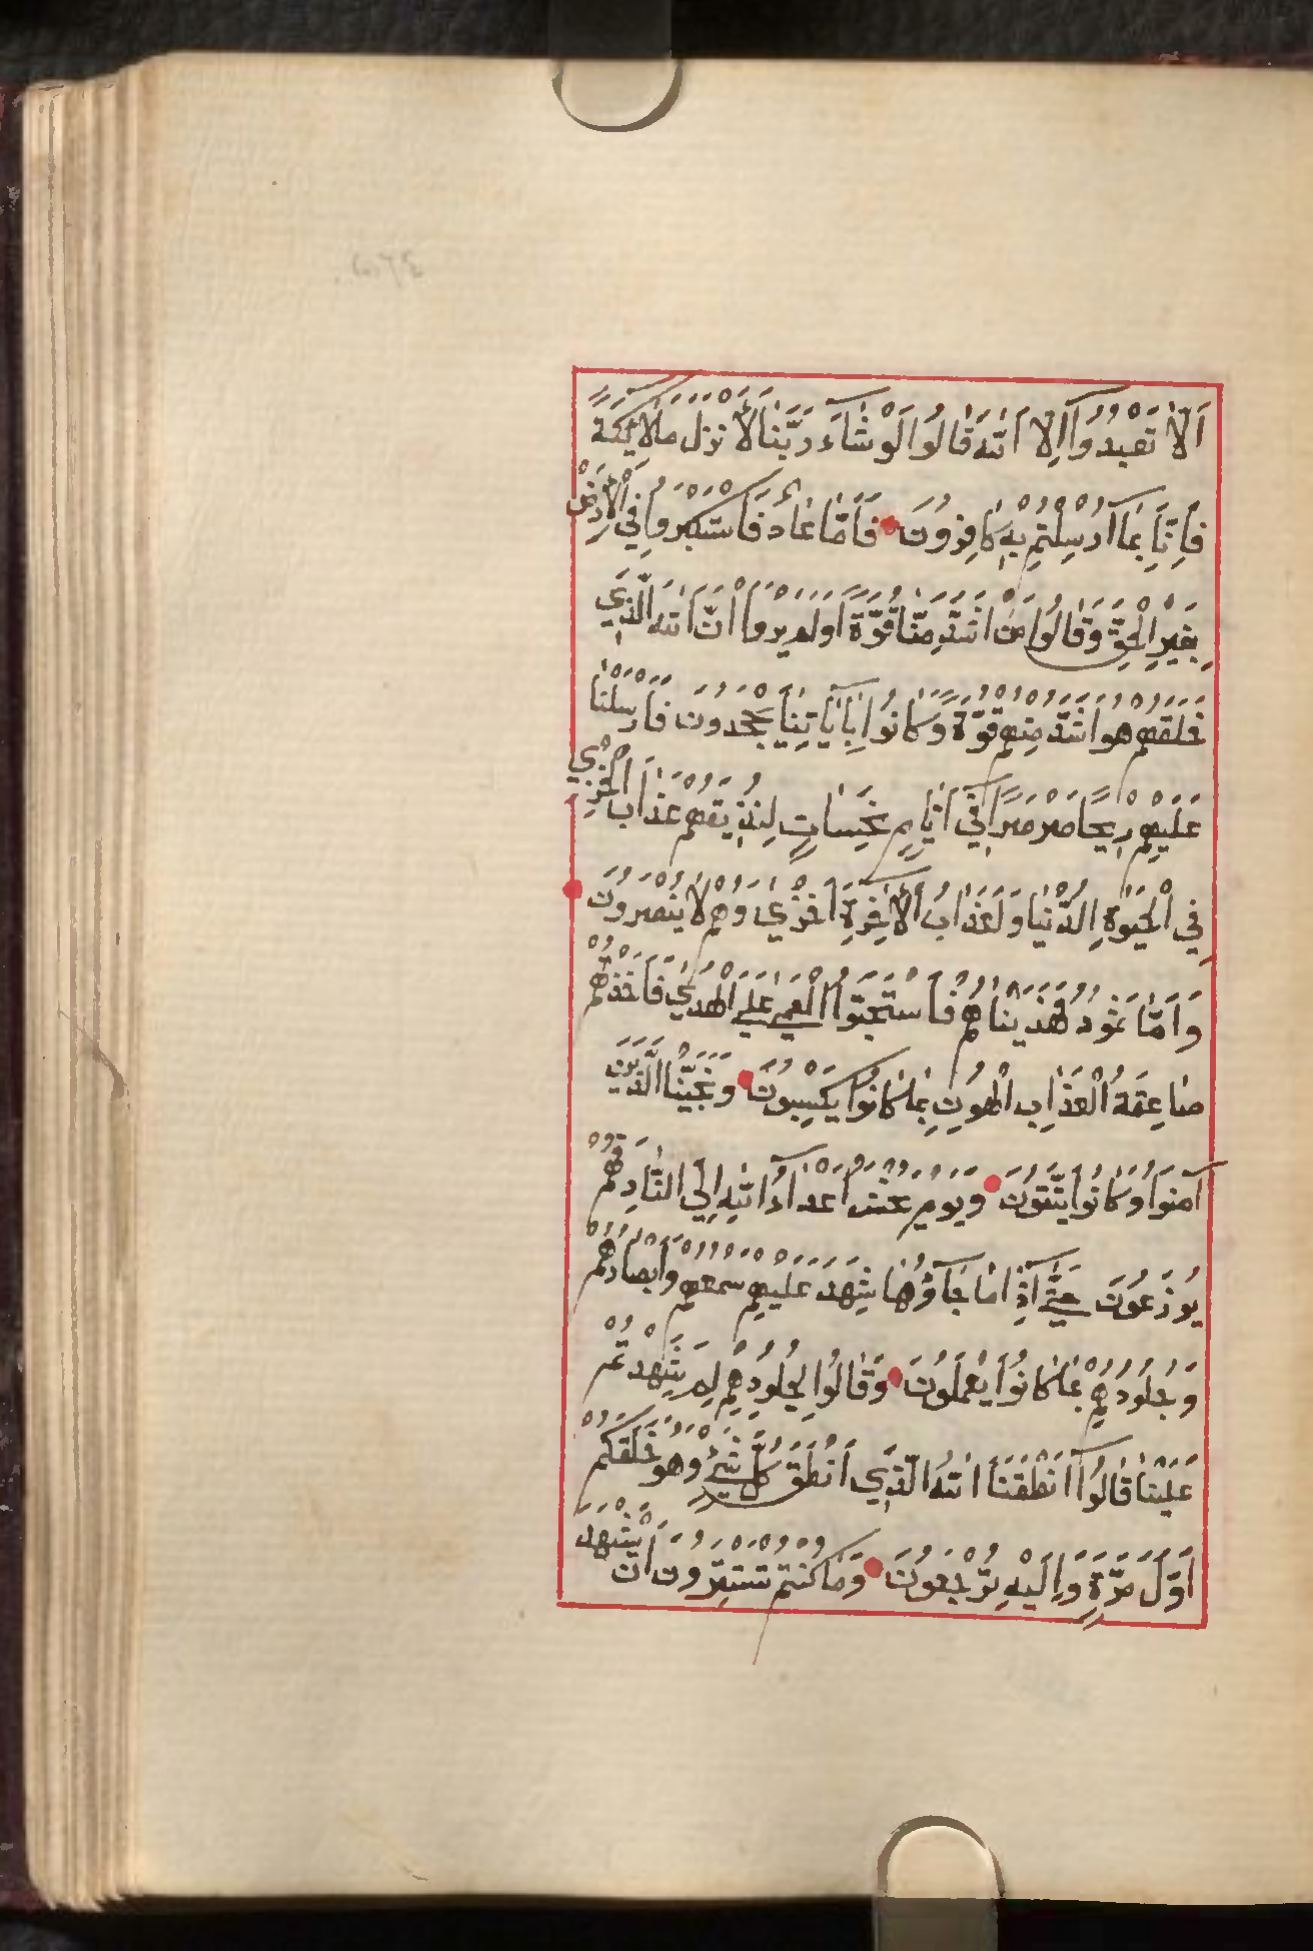 اَلَّا تَعْبُدُوٓا اِلَّا اللّٰهَ قَالُوا لَوْ شَآءَ رَبُّنَا لَأَنْزَلَ مَلَآئِكَةً
فَاِنَّا بِمَٓا اُرْسِلْتُمْ بِهٖ كَافِرُونَ فَاَمَّا عَادٌ فَاسْتَكْبَرُوا فِي الْاَرْضِ
بِغَيْرِ الْحَقِّ وَقَالُوا مَنْ اَشَدُّ مِنَّا قُوَّةً اَوَلَمْ يَرَوْا اَنَّ اللّٰهَ الَّذِي
خَلَقَهُمْ هُوَ اَشَدُّ مِنْهُمْ قُوَّةً وَكَانُوا بِاٰيَاتِنَا يَجْحَدُونَ فَاَرْسَلْنَا
عَلَيْهِمْ رِيحًا صَرْصَرًا فِٓي اَيَّامٍ نَحِسَاتٍ لِنُذِيقَهُمْ عَذَابَ الْخِزْيِ
فِي الْحَيٰوةِ الدُّنْيَا وَلَعَذَابُ الْاٰخِرَةِ اَخْزٰي وَهُمْ لَا يُنْصَرُونَ
وَاَمَّا ثَمُودُ فَهَدَيْنَاهُمْ فَاسْتَحَبُّوا الْعَمٰي عَلَي الْهُدٰي فَاَخَذَتْهُمْ
صَاعِقَةُ الْعَذَابِ الْهُونِ بِمَا كَانُوا يَكْسِبُونَ وَنَجَّيْنَا الَّذِينَ
اٰمَنُوا وَكَانُوا يَتَّقُونَ وَيَوْمَ يُحْشَرُ اَعْدَآءُ اللّٰهِ اِلَي النَّارِ فَهُمْ
يُوزَعُونَ حَتّٰٓي اِذَا مَا جَآؤُهَا شَهِدَ عَلَيْهِمْ سَمْعُهُمْ وَاَبْصَارُهُمْ
وَجُلُودُهُمْ بِمَا كَانُوا يَعْمَلُونَ وَقَالُوا لِجُلُودِهِمْ لِمَ شَهِدْتُمْ
عَلَيْنَا قَالُوٓا اَنْطَقَنَا اللّٰهُ الَّذِٓي اَنْطَقَ كُلَّ شَيْءٍ وَهُوَ خَلَقَكُمْ
اَوَّلَ مَرَّةٍ وَاِلَيْهِ تُرْجَعُونَ وَمَا كُنْتُمْ تَسْتَتِرُونَ اَنْ يَشْهَدَ